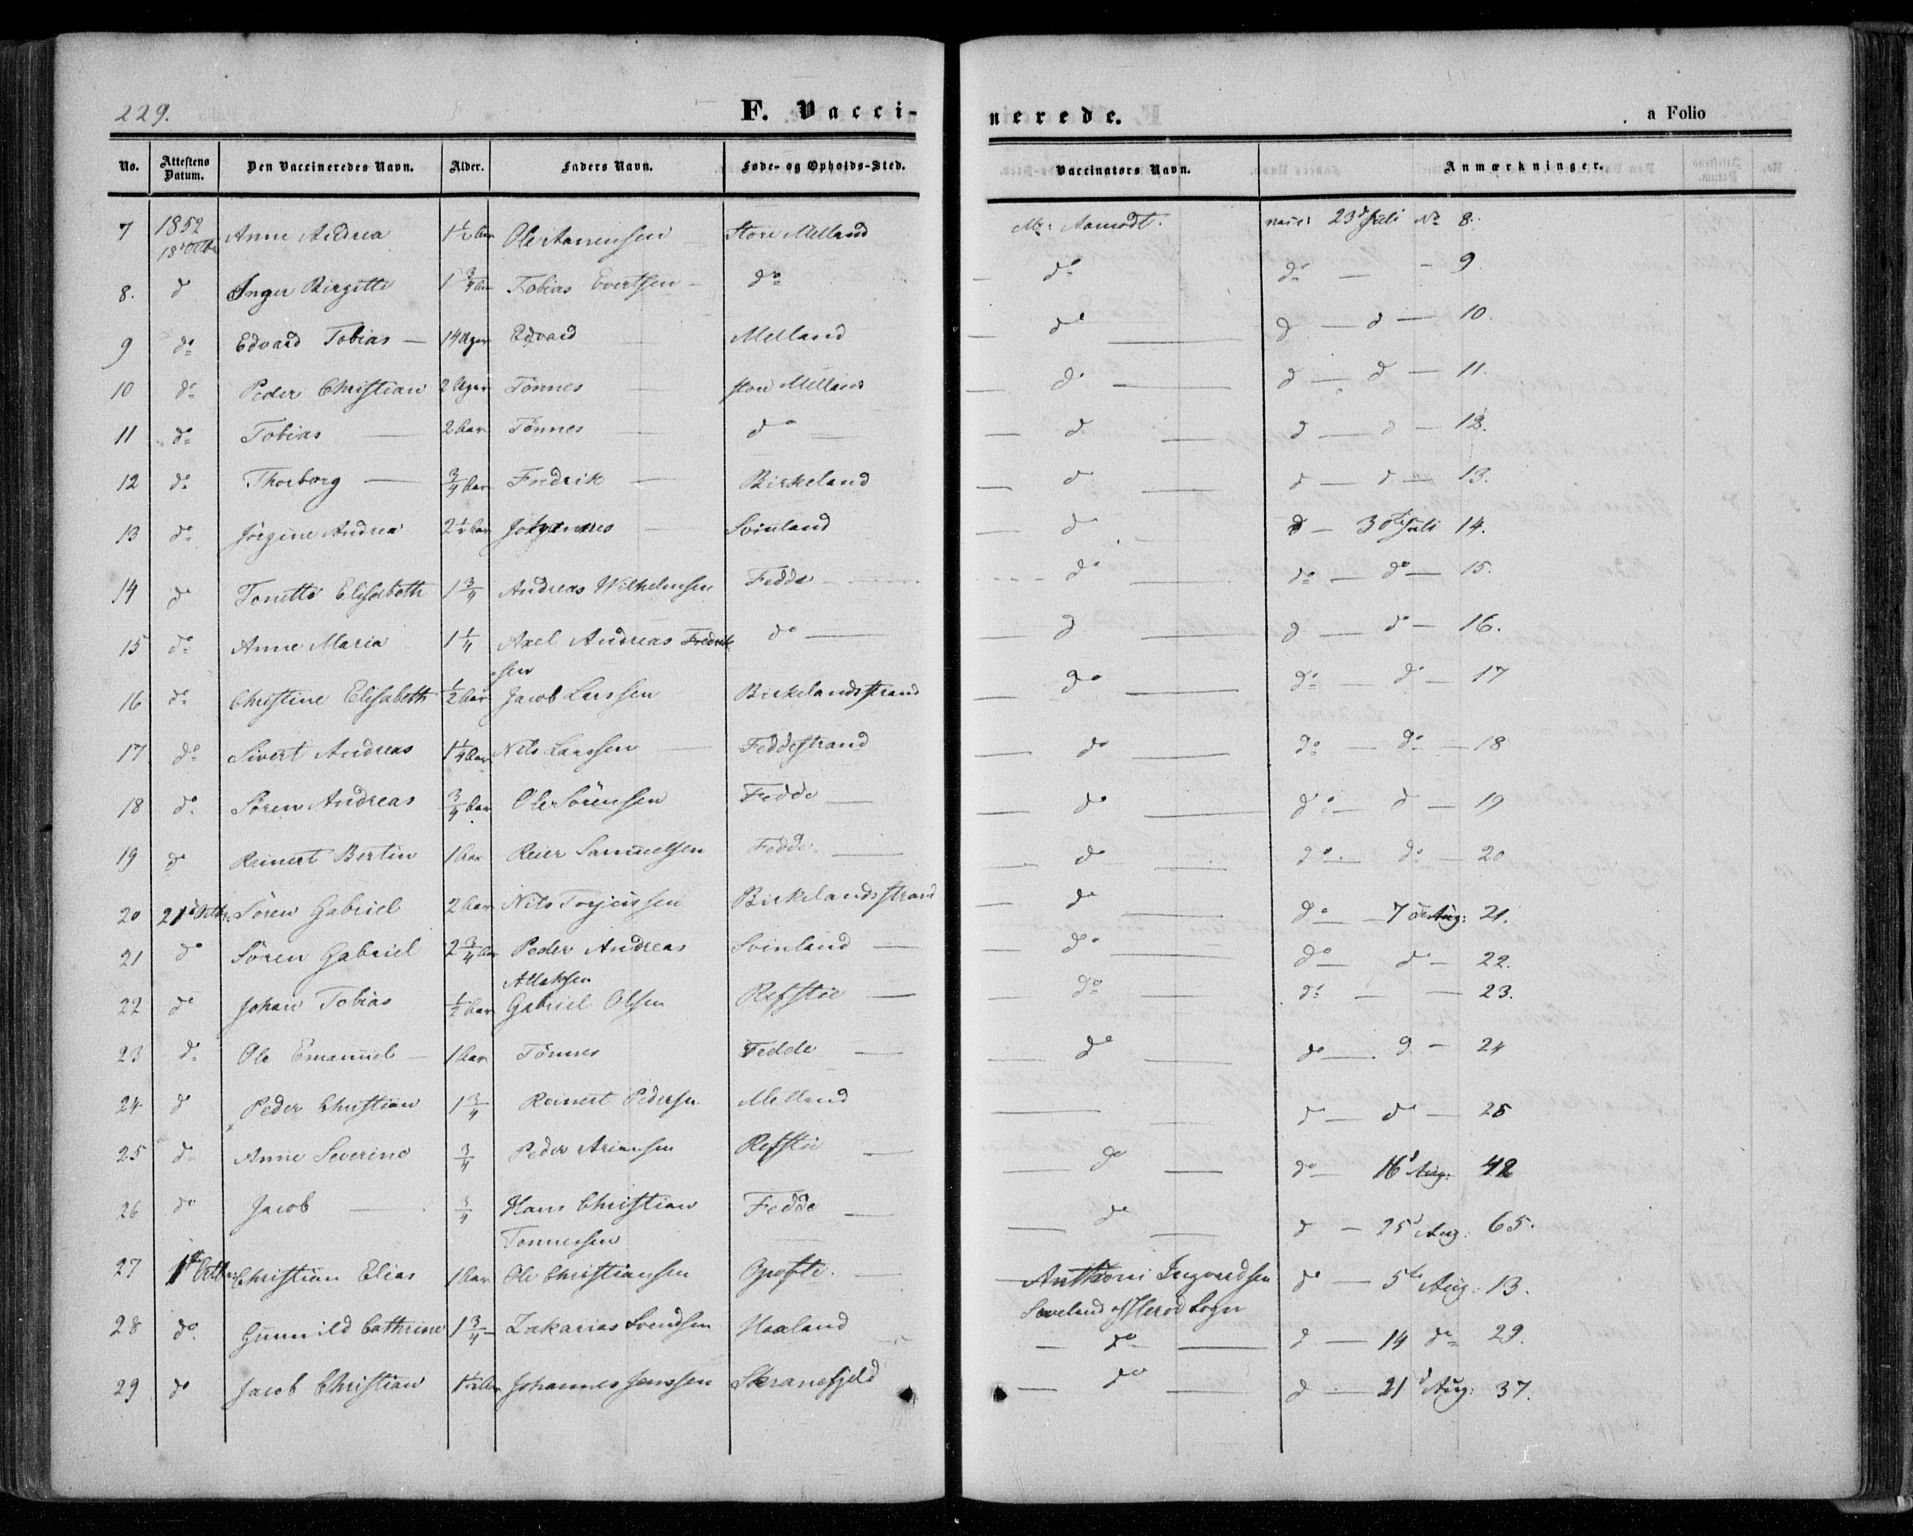 229.
F. Vacci-
nerede.
a Folio
No. Attestens Datum. Den Vaccineredes Navn. Alder. Faders Navn. Føde- og Opholds-Sted. Vaccinators Navn. Anmærkninger.
7 1852 18d Octbr Anne Andrea 1½ Aar Ole Store Melland Mr: Aamodt. 23d Juli No 8.
8. do Inger Birgitte 1¾ Aar Tobias Evertsen — do — do do — — 9
9 do Edvard Tobias — 14 Uger Edvard Melland do — d — d — 10.
10 do Peder Christian 2 Uger Tönnes store Melland — do — d — d — 11.
11 do Tobias — 2 Aar Tönnes do — — d — d — d — 12.
12 do Thorborg — ¾ Aar Fredrik — Birkeland — d — d — d — 13.
13 do Jörgine Andrea 2½ Aar Johannes — Svinland — d d — 30te Juli 14.
14 do Tonette Elisabeth 1¾ Andreas Wilhelmsen Fedde do — do — do — 15.
15 do Anne Maria 1¼ Axel Andreas Fredrik do — — d — d — do — 16.
sen
16 do Christine Elisabeth ½ Aar Jacob Larssen Birkelandsstrand — do — do — d — 17
17 do Sivert Andreas 1¼ Aar Nils Larssen — Feddestrand — do — do — do — 18
18 do Sören Andreas ¾ Aar Ole Sörensen Fedde — — do — do — d — 19
19 do Reinert Bertin 1 Aar Reier Samuelsen Fedde — — do — do — do — 20
20 21d Octbr: Sören Gabriel 2 Aar Nils Torjeussen Birkelandsstrand — do — do — 7de Aug: 21.
21 do Sören Gabriel 2¾ Aar Peder Andreas Svinland — — do — do — d — 22.
Atlaksen
22 do Johan Tobias ½ Aar Gabriel Olsen Refstie — — do — do — — 23.
23 do Ole Emanuel — 1 Aar Tönnes Fedde — — do — do — d — 24
24 d Peder Christian 1¾ Reinert Pedersen Melland — d — do — 25
25 do Anne Severine ¾ Peder Refstie — — do — do — 16d Aug: 42
26 do Jacob — ¾ Hans Christian Fedde — — do — d — 25d Aug: 65.
Tonnessen
27 1ste Octbr: Christian Elias 1 Aar Ole Christiansen — Anthoni Ingvardsen do — 5te Aug: 13.
Herod Sogn
28 do Gunnild Cathrine 1¾ Zakarias Svendsen Haaland — do — d — 14 do 29.
29 do Jacob Christian 1½ Aar Johannes Jenssen Skranefjeld — do — d — 21d Aug: 37.